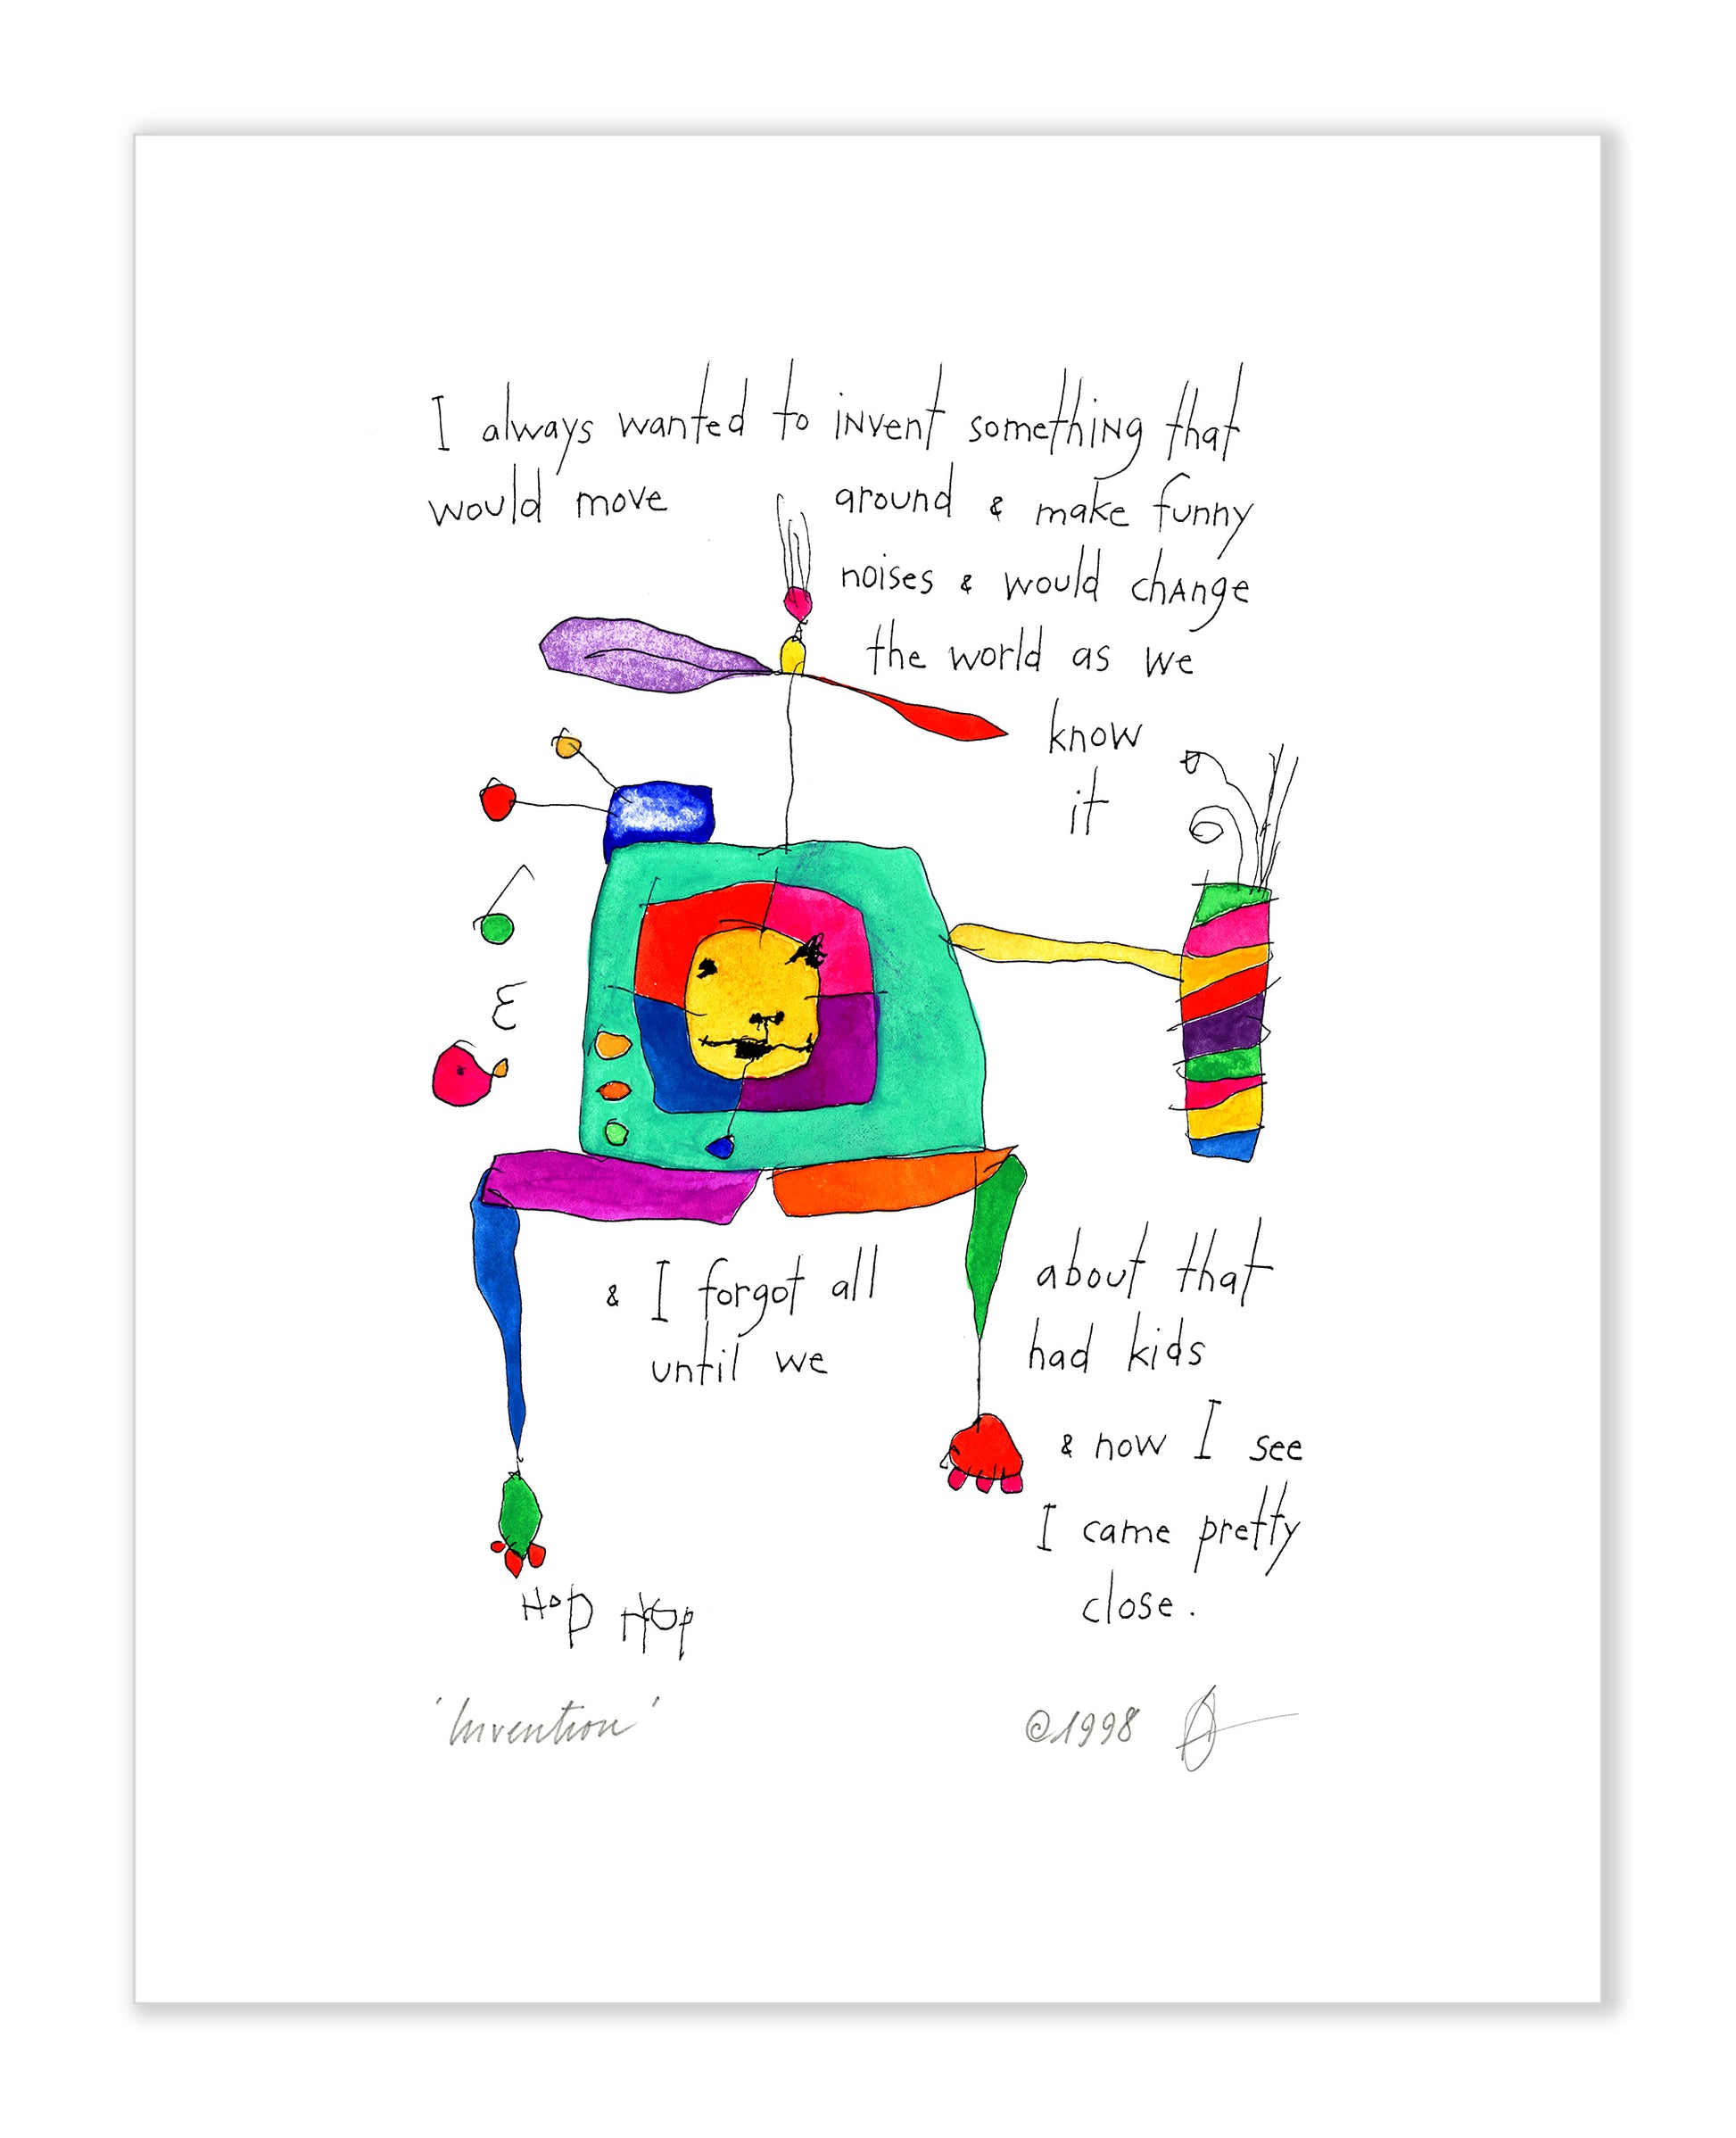 I always wanted to invent something that
would move around & make funny
noises & would change
the world as we
know
it
& I forgot all about that
until we had kids
& now I see
I came pretty
close.
HOP HOP
'Invention' ©1998